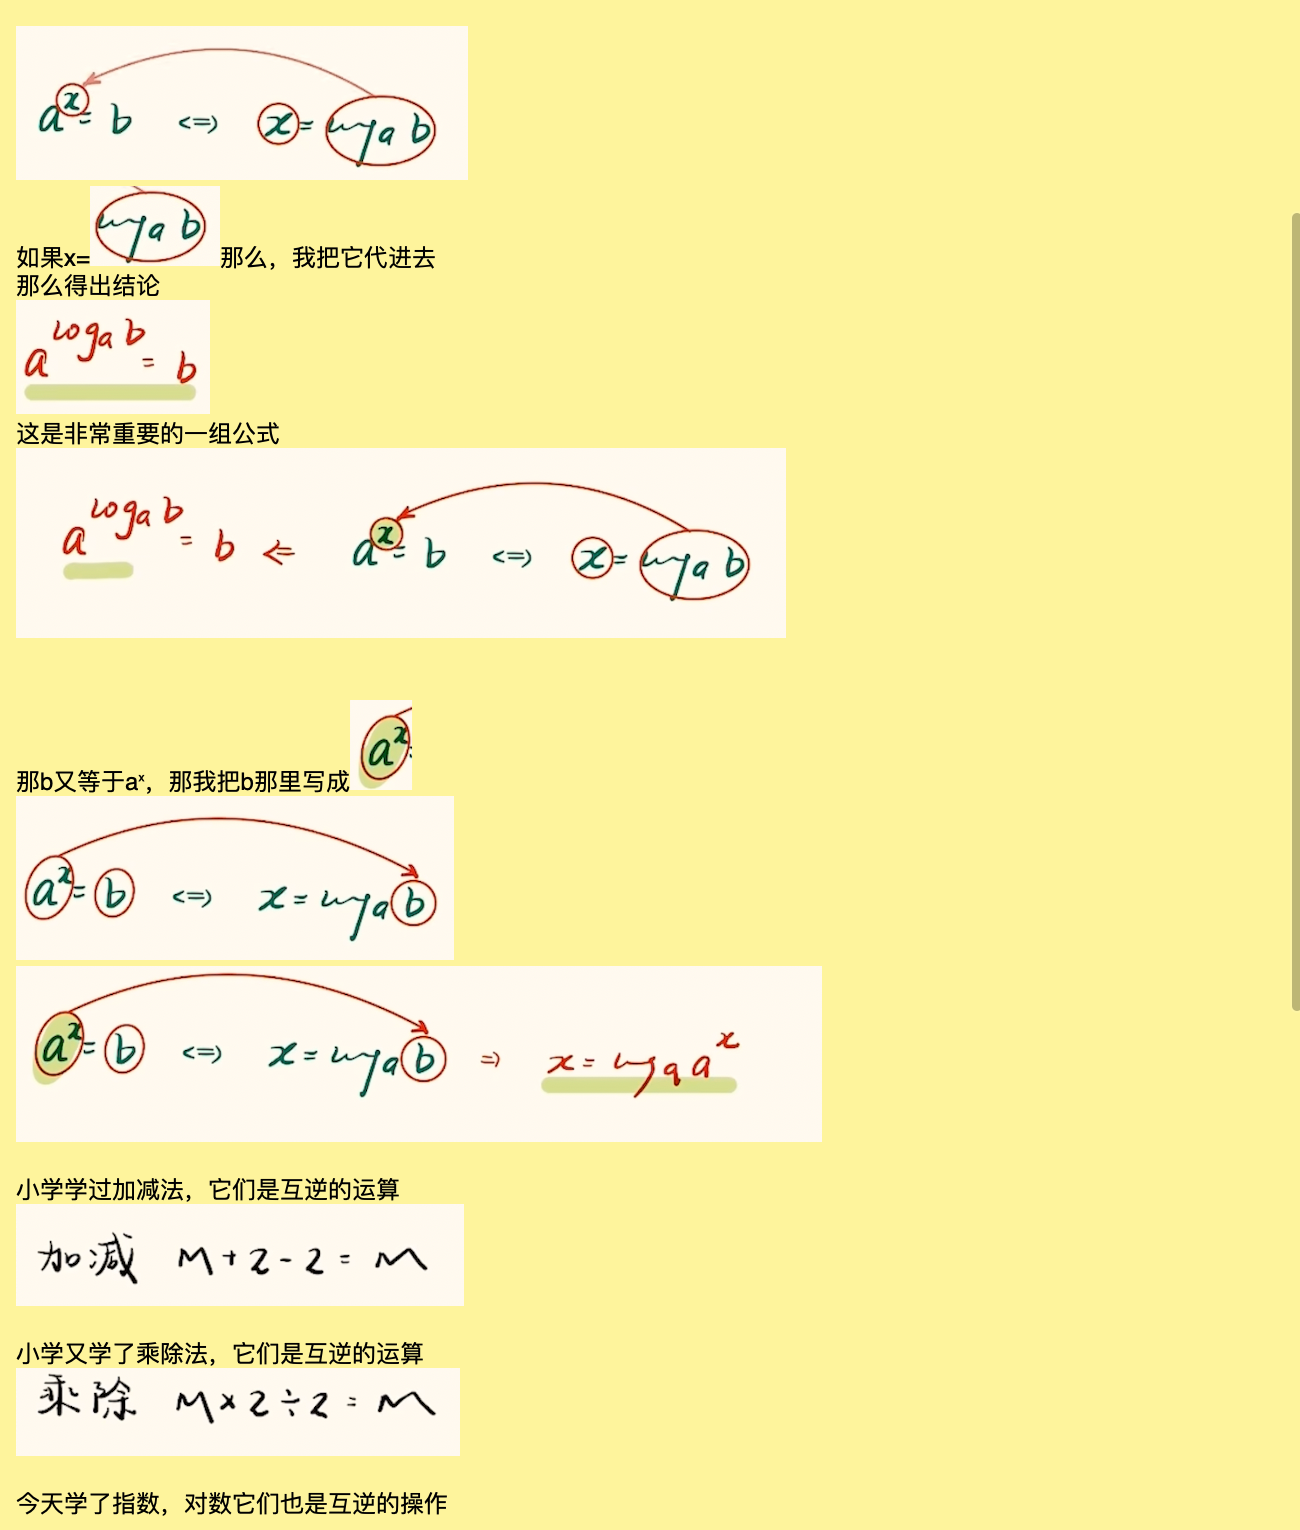 aˣ = b <=> x = logₐ b
如果x= logₐ b 那么，我把它代进去
那么得出结论
a^(logₐ b) = b
这是非常重要的一组公式
a^(logₐ b) = b <= aˣ = b <=> x = logₐ b
那b又等于aˣ，那我把b那里写成 aˣ
aˣ = b <=> x = logₐ b
aˣ = b <=> x = logₐ b => x = logₐ aˣ
小学学过加减法，它们是互逆的运算
加减 M + 2 - 2 = M
小学又学了乘除法，它们是互逆的运算
乘除 M × 2 ÷ 2 = M
今天学了指数，对数它们也是互逆的操作